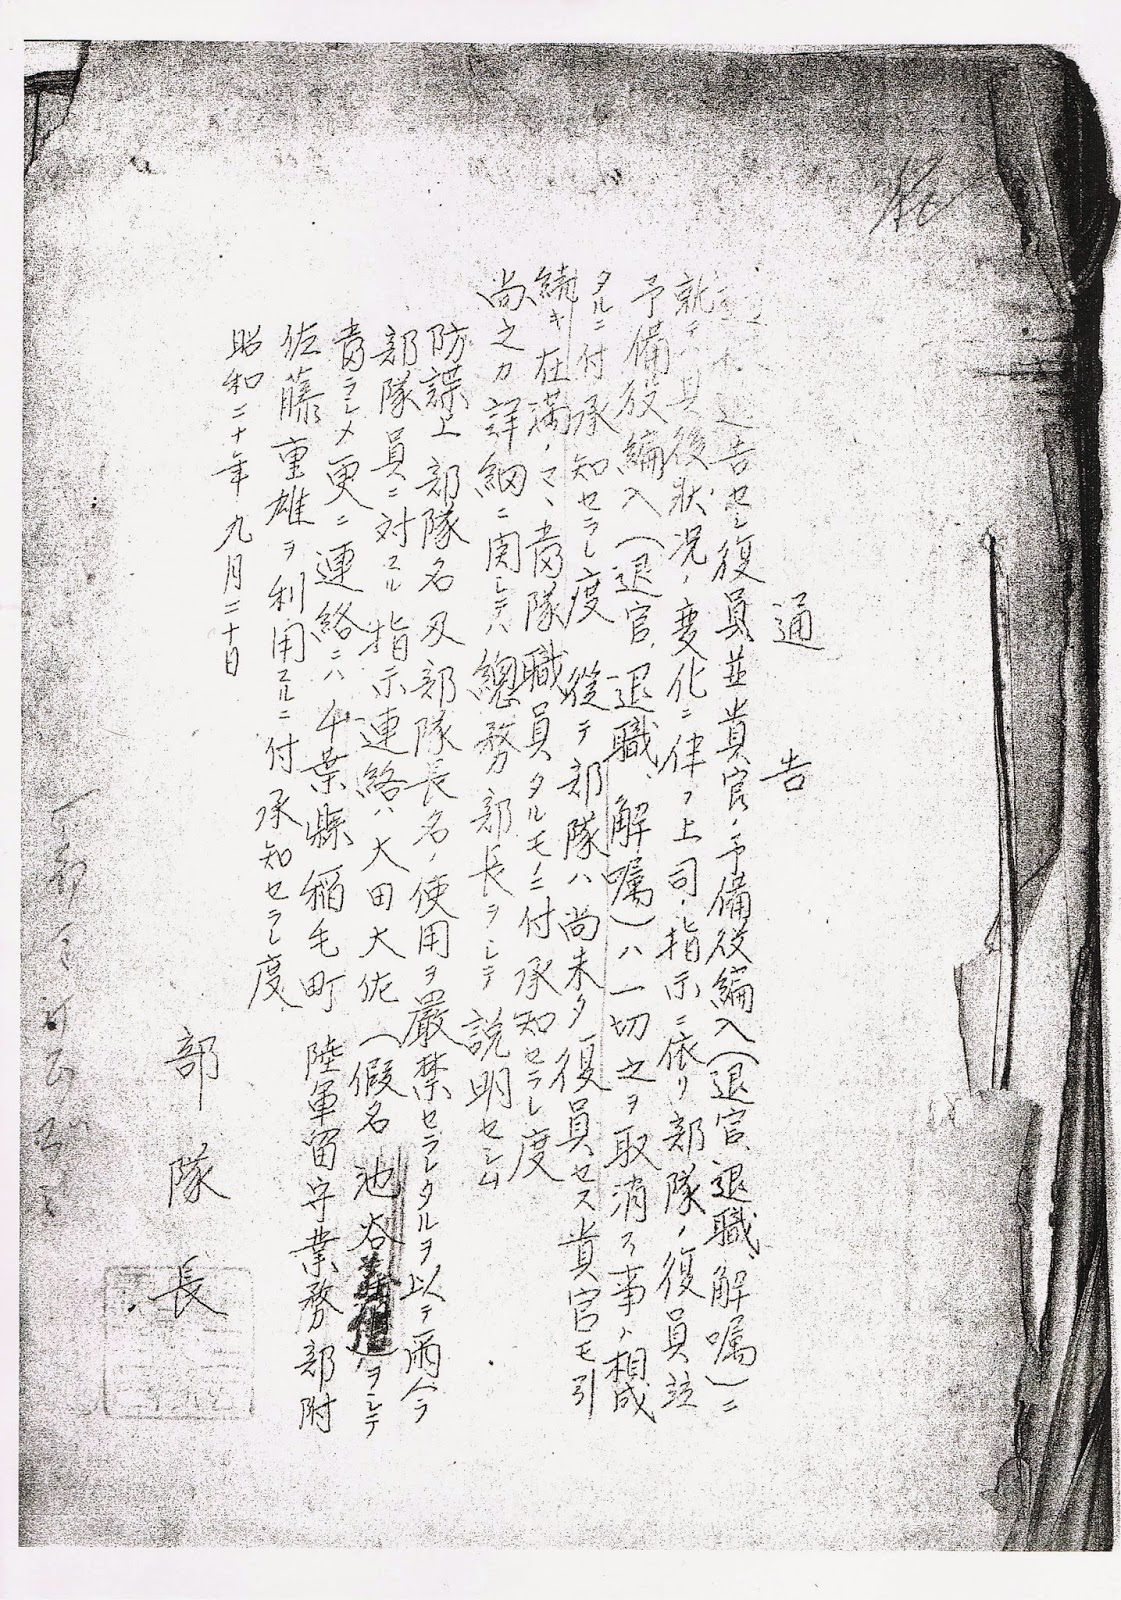 通告
通告セシ復員並貴官ノ予備役編入(退官、退職、解嘱)ニ
就テハ其後狀況ノ変化ニ伴フ上司ノ指示ニ依リ部隊ノ復員竝
予備役編入(退官、退職、解嘱)ハ一切之ヲ取消ス事ト相成
タルニ付承知セラレ度 從テ部隊ハ尚未タ復員セス貴官モ引
続キ在満ノマヽ当隊職員タルモノニ付承知セラレ度
尚之カ詳細ニ関シテハ總務部長ヲシテ説明セシム
防諜上部隊名及部隊長名ノ使用ヲ嚴禁セラレタルヲ以テ爾今
部隊員ニ対スル指示連絡ハ大田大佐(假名 池谷
)ヲシテ
当ラシメ更ニ連絡ニハ千葉縣稲毛町 陸軍留守業務部附
佐藤重雄ヲ利用スルニ付承知セラレ度
昭和二十年九月二十日
部隊長